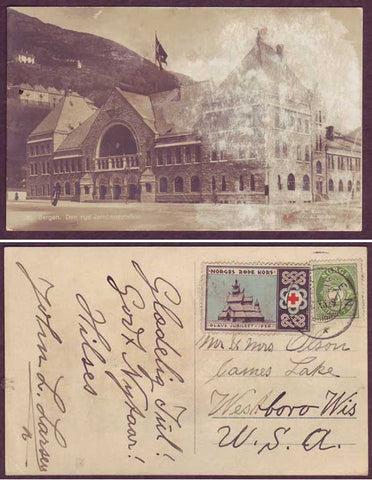 Bergen. Den nye Jernbanestation
NORGES RØDE KORS
OLAVS JUBILEET · 1930
Gladelig Jul!
Godt Nytaar!
Hilses
John L. Larsen
Mr & Mrs Olson
Cames Lake
Westboro Wis
U.S.A.